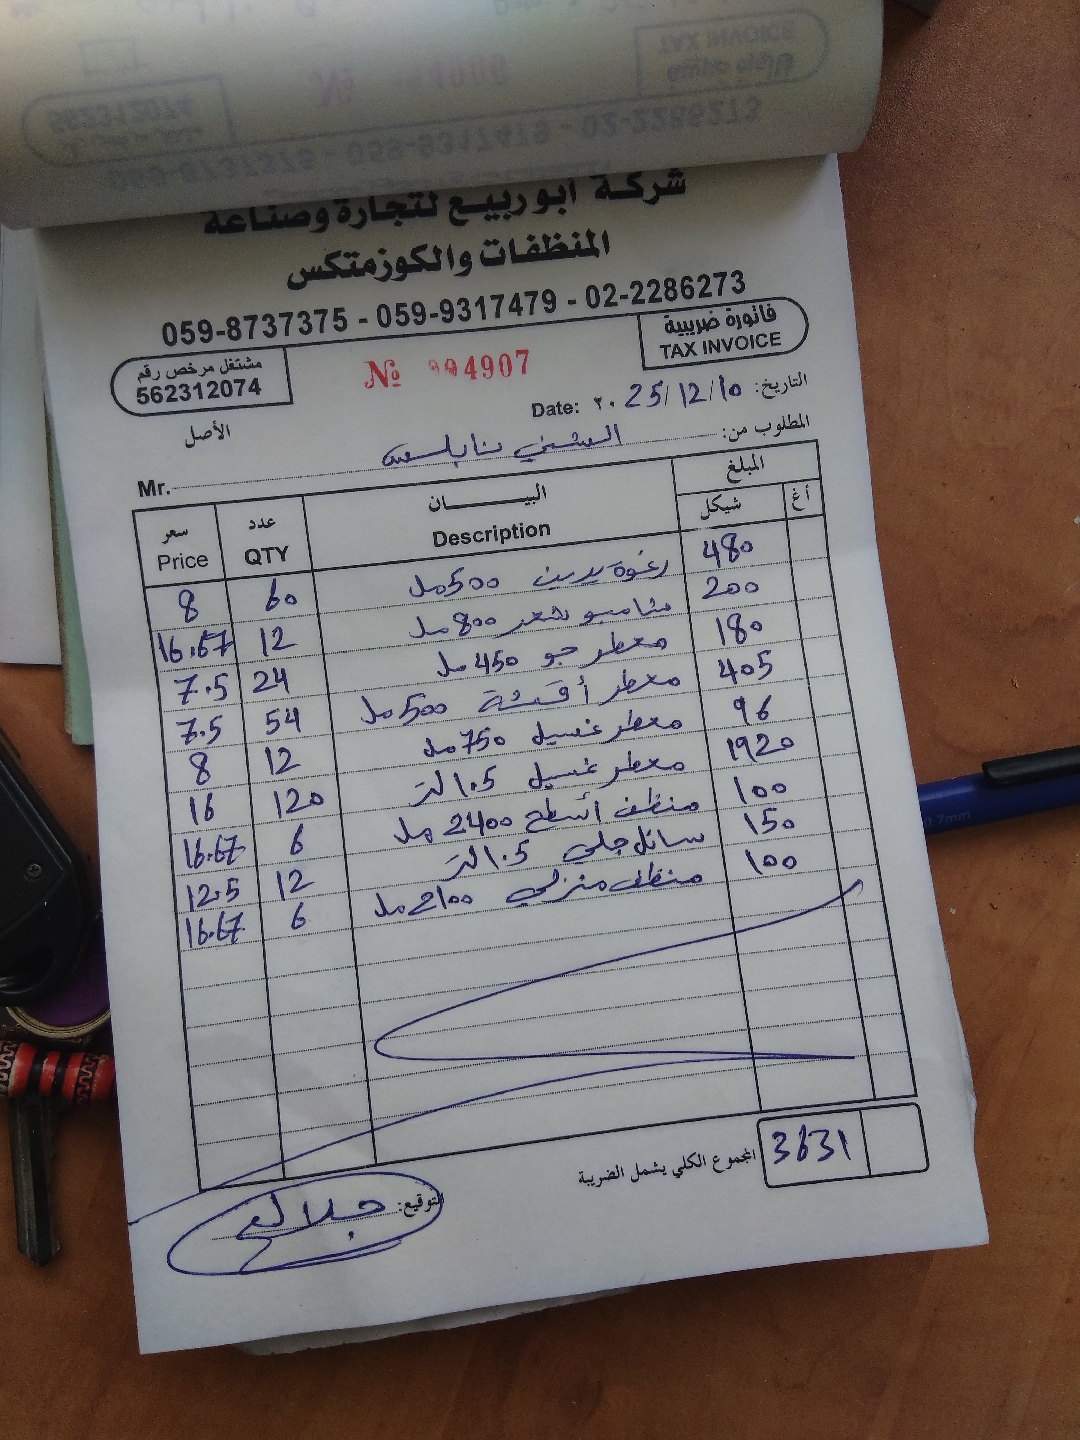 شركة أبو ربيع لتجارة وصناعة
المنظفات والكوزمتكس
059-8737375 - 059-9317479 - 02-2286273
مشتغل مرخص رقم
562312074
№ 004907
فاتورة ضريبية
TAX INVOICE
الأصل
Date: ٢٠25/12/10 التاريخ:
Mr. نابلس المطلوب من:
سعر Price عدد QTY البيان Description المبلغ شيكل أغ
8 60 رغوة يدين 500 مل 480
16.67 12 شامبو شعر 800 مل 200
7.5 24 معطر جو 450 مل 180
7.5 54 معطر أقمشة 500 مل 405
8 12 معطر غسيل 750 مل 96
16 120 معطر غسيل 1.5 لتر 1920
16.67 6 منظف اسطح 2400 مل 100
12.5 12 سائل جلي 1.5 لتر 150
16.67 6 منظف منزلي 2100 مل 100
المجموع الكلي يشمل الضريبة 3631
التوقيع: